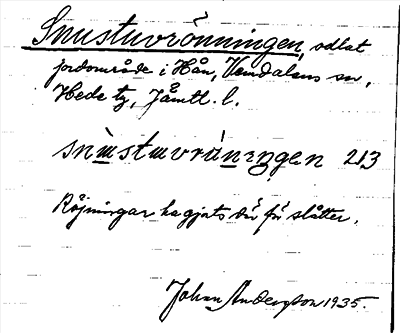 Smustuvrönningen, odlat
jordområde i Hån, Vemdalens sn,
Hede tg, Jämtl. l.
snùmstuvrùningen 213
Röjningar ha gjorts där för slåtter.
Johan Andersson 1935.